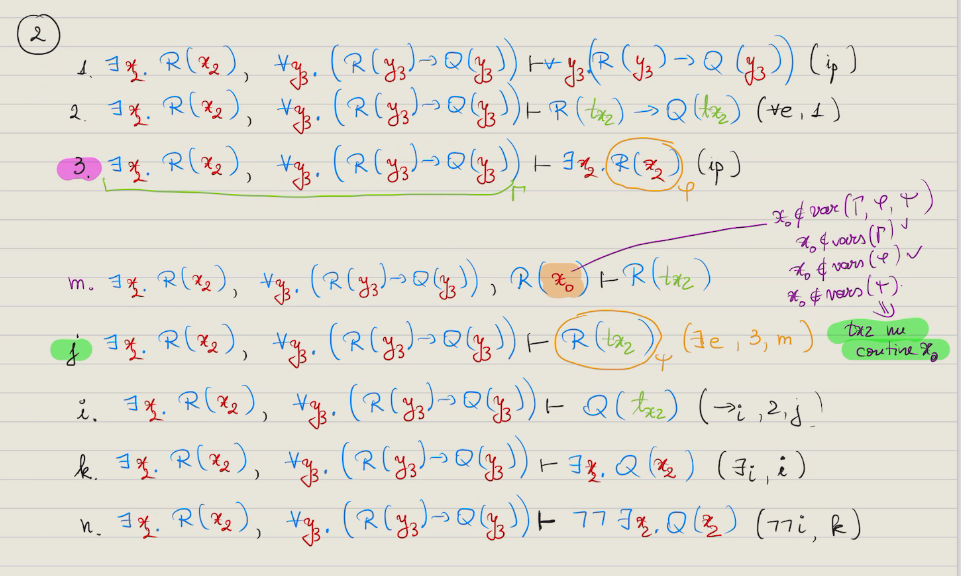 2
1. ∃x₂. R(x₂), ∀y₃. (R(y₃)→Q(y₃)) ⊢ ∀y₃.(R(y₃)→Q(y₃)) (ip)
2. ∃x₂. R(x₂), ∀y₃. (R(y₃)→Q(y₃)) ⊢ R(tx₂) → Q(tx₂) (∀e, 1)
3. ∃x₂. R(x₂), ∀y₃. (R(y₃)→Q(y₃)) ⊢ ∃x₂. R(x₂) (ip)
Γ φ
x₀ ∉ var(Γ, φ, Ψ)
x₀ ∉ vars(Γ) ✓
x₀ ∉ vars(φ) ✓
x₀ ∉ vars(Ψ).
⇓
tx2 nu
contine x₀
m. ∃x₂. R(x₂), ∀y₃. (R(y₃)→Q(y₃)), R(x₀) ⊢ R(tx₂)
j ∃x₂. R(x₂), ∀y₃. (R(y₃)→Q(y₃)) ⊢ R(tx₂) (∃e, 3, m)
Ψ
i. ∃x₂. R(x₂), ∀y₃. (R(y₃)→Q(y₃)) ⊢ Q(tx₂) (→i, 2, j)
k. ∃x₂. R(x₂), ∀y₃. (R(y₃)→Q(y₃)) ⊢ ∃x₂. Q(x₂) (∃i, i)
n. ∃x₂. R(x₂), ∀y₃. (R(y₃)→Q(y₃)) ⊢ ¬¬∃x₂. Q(x₂) (¬¬i, k)